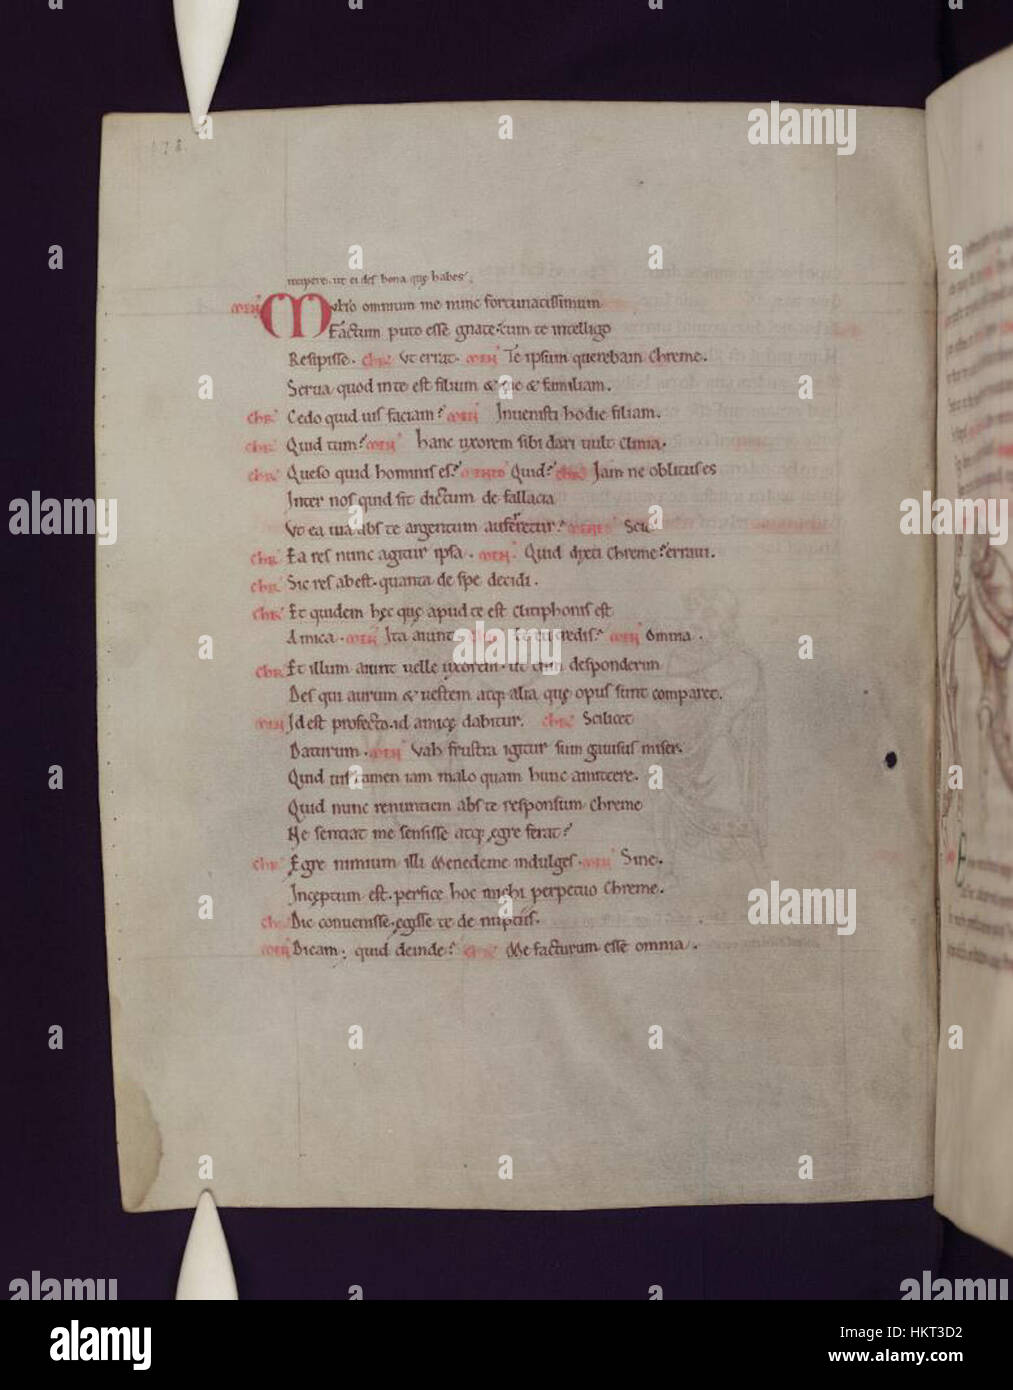 incipere. ut ei des bona quę habes.
MEN Multo omnium me nunc fortunatissimum
Factum puto esse gnate. cum te intelligo
Resipisse. CHR Vt errat. MEN Te ipsum querebam chreme.
Serua quod in te est filium & me & familiam.
CHR Cedo quid uis faciam? MEN Inuenisti hodie filiam.
CHR Quid tum? MEN hanc uxorem sibi dari uult clinia.
CHR Queso quid hominis es? MENED Quid? CHR Jam ne oblitus es
Inter nos quid sit dictum de fallacia
Vt ea uia abs te argentum auferretur? MENED Scio
CHR Ea res nunc agitur ipsa. MEN Quid dixti chreme? erraui.
CHR Sic res abest. quanta de spe decidi.
CHR Et quidem hęc quę apud te est clitiphonis est
Amica. MEN Ita aiunt. CHR Et tu credis? MEN omnia.
CHR Et illum aiunt uelle uxorem. ut cum desponderim
Des qui aurum & uestem atq; alia quę opus sunt comparet.
MEN Id est profecto. id amicę dabitur. CHR Scilicet
Daturum. MEN Vah frustra igitur sum gauisus miser.
Quid uis tamen iam malo quam hunc amittere.
Quid nunc renuntiem abs te responsum chreme
Ne sentiat me sensisse atq; ęgre ferat?
CHR Ęgre nimium illi Menedeme indulges. MEN Sine.
Incęptum est. perfice hoc michi perpetuo chreme.
CHR Dic conuenisse. ęgisse te de nuptiis.
MEN Dicam. quid deinde? CHR Me facturum esse omnia.
alamy
a
alamy
Image ID: HKT3D2
www.alamy.com